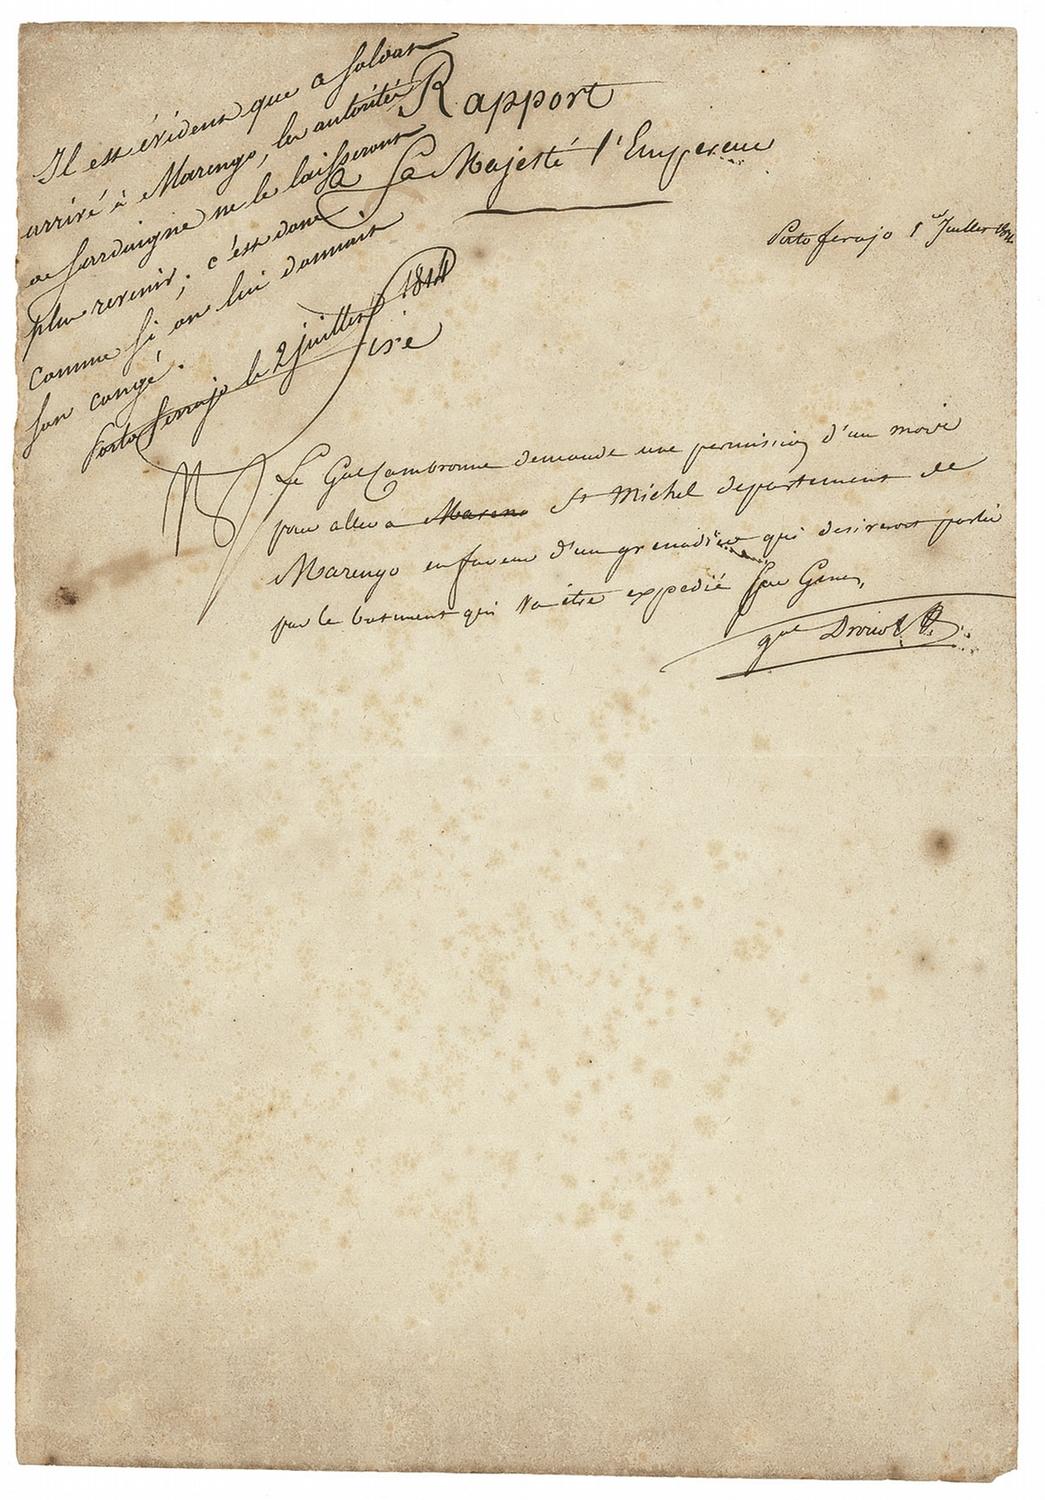 Il est évident que ce soldat
arrivé à Marengo, les autorités
de Sardaigne ne le laisseront
plus revenir; c'est donc
comme si on lui donnait
son congé.
Porto ferrajo le 2 juillet 1814
Rapport
a Sa Majesté l'Empereur
Porto ferajo 1er Juillet 1814
Sire
Le Gal Cambronne demande une permission d'un mois
pour aller a Mareno St Michel departement de
Marengo en faveur d'un grenadier qui desireroit partir
par le batiment qui va etre expedié pour Genes,
gal Drouot